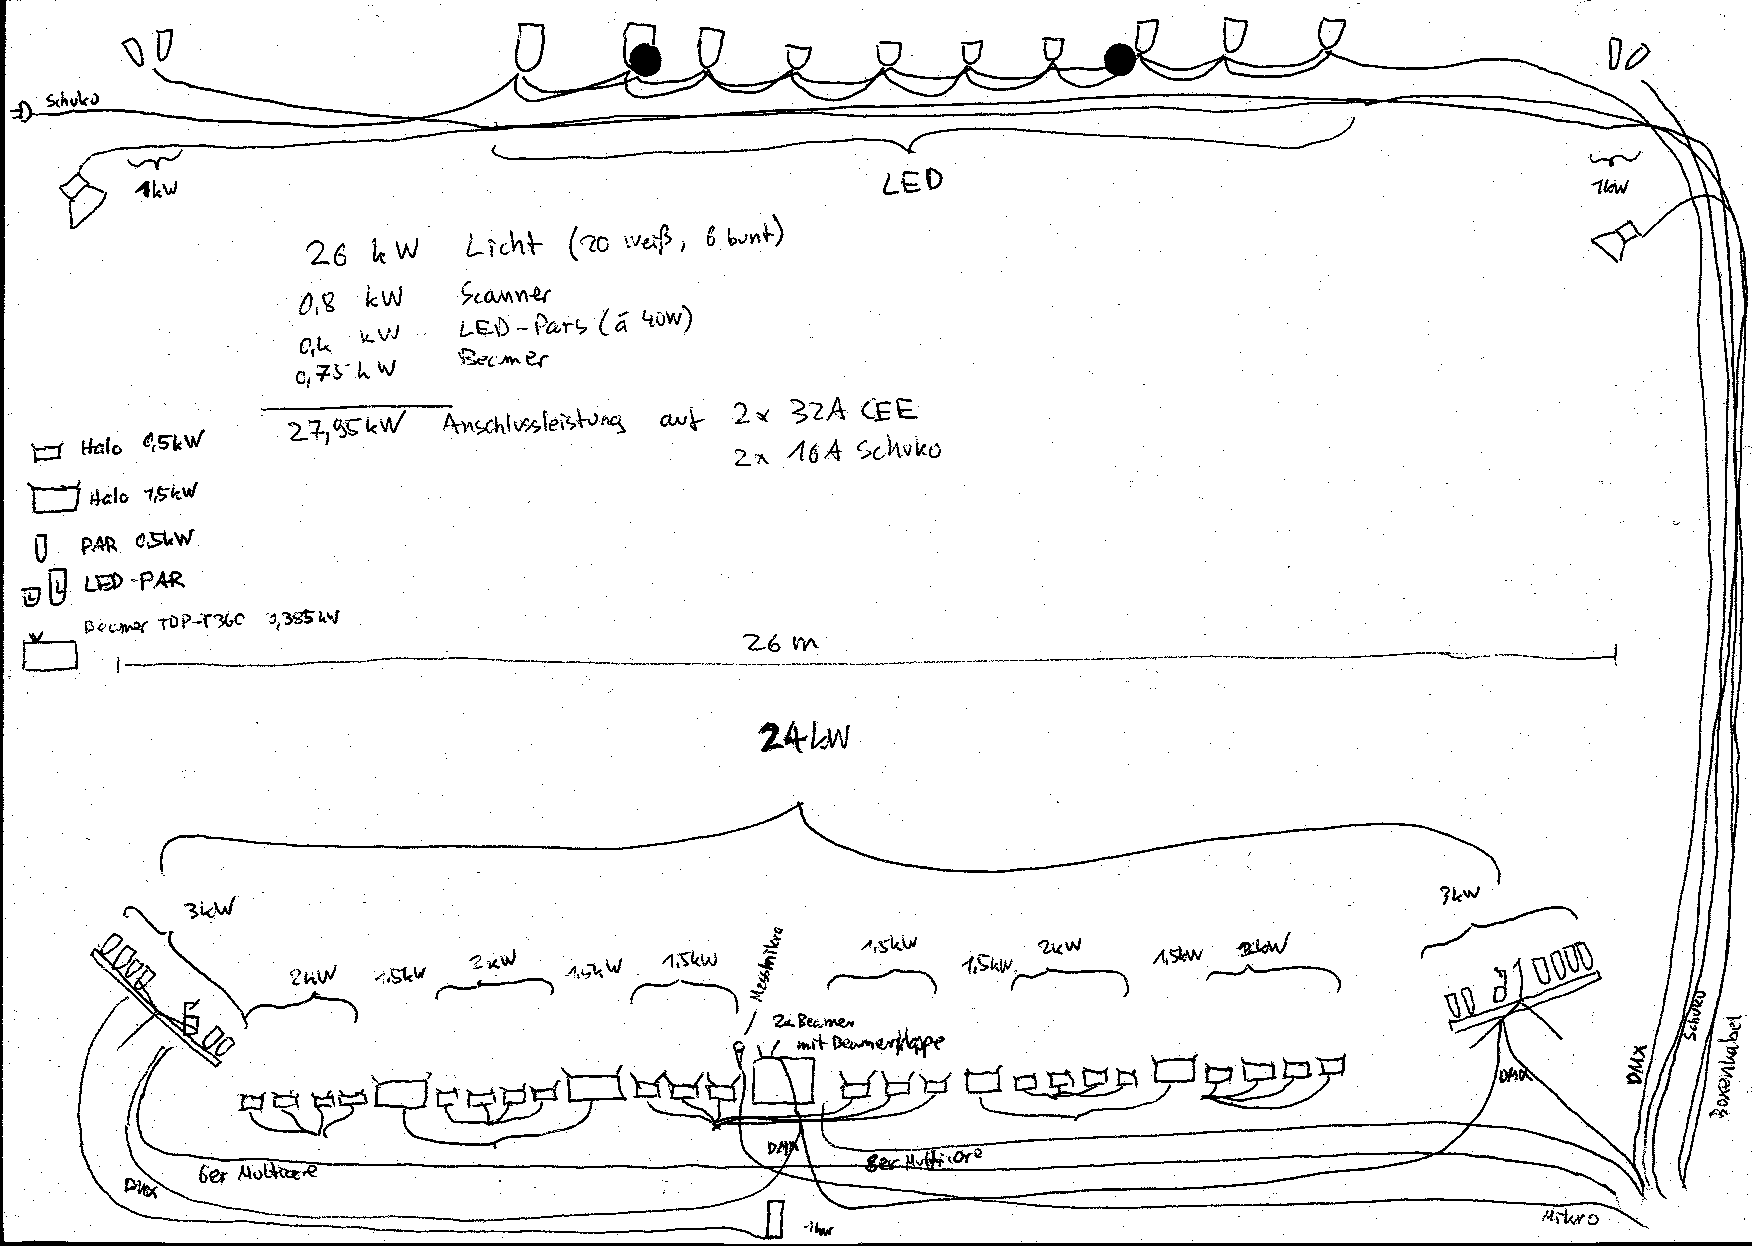 Schuko
1kW
LED
1kW
26 kW Licht (20 weiß, 6 bunt)
0,8 kW Scanner
0,4 kW LED-Pars (á 40W)
0,75 kW Beamer
27,95kW Anschlussleistung auf 2x 32A CEE
2x 16A Schuko
Halo 0,5kW
Halo 1,5kW
PAR 0,5kW
L L LED-PAR
Beamer TDP-T360 0,385kW
26 m
24kW
3kW
2kW
1,5kW
2kW
1,5kW
1,5kW
Messmikro
1,5kW
1,5kW
2kW
1,5kW
2kW
3kW
2x Beamer
mit Beamerklappe
DMX
6er Multicore
DMX
8er Multicore
DMX
DMX
Schuko
Boxenkabel
Mikro